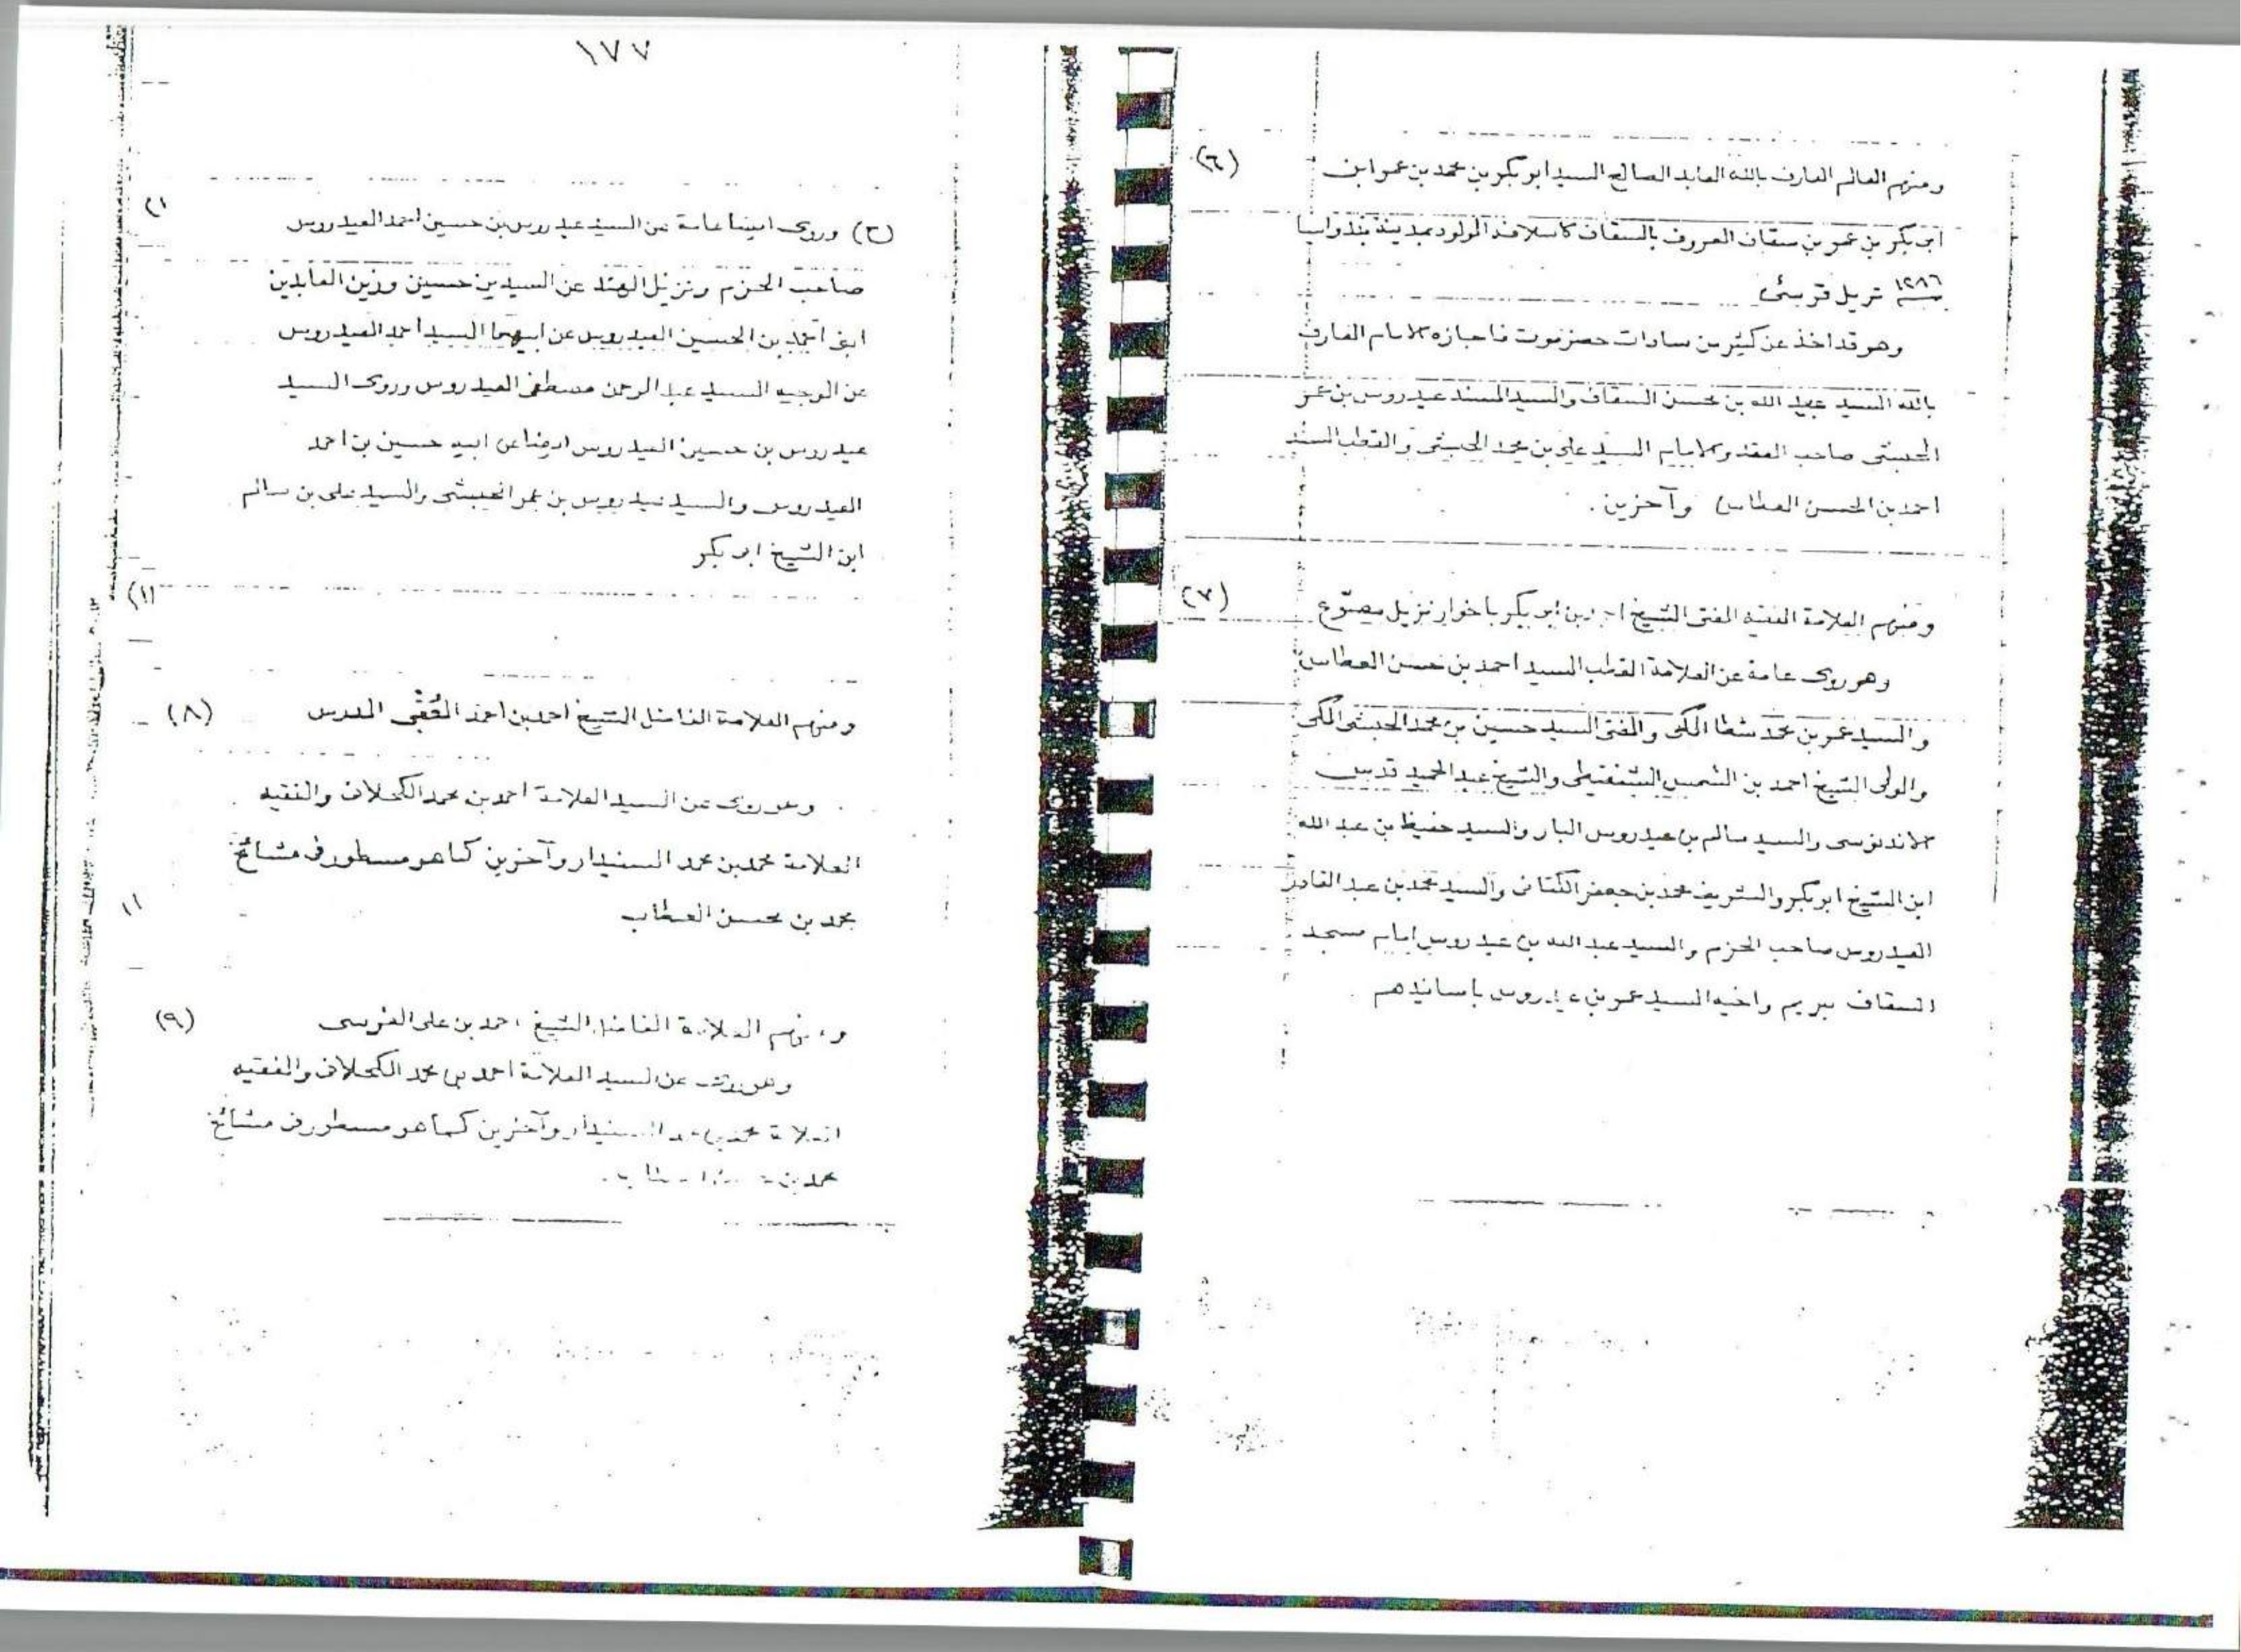 (٦)
ومنهم العالم العارف بالله العابد الصالح السيد ابو بكر بن محمد بن عمر ابن
ابى بكر بن عمر بن سقاف المعروف بالسقاف كاسلافه المولود بمدينة
١٢٨٦
وهو قد اخذ عن كثير من سادات حضرموت فاجازه الامام العارف
بالله السيد عبد الله بن محسن السقاف والسيد المسند عيدروس بن عمر
الحبشى صاحب العقد والامام السيد على بن محمد الحبشى والقطب السند
احمد بن الحسن العطاس وآخرين .
(٧)
ومنهم العلامة الفقيه المفتى الشيخ بن ابو بكر باخوار نزيل مصوّع
وهو روى عامة عن العلامة القطب السيد احمد بن حسن العطاس
والسيد عمر بن محمد شطا المكى والمفتى السيد حسين بن محمد الحبشى المكى
والولى الشيخ احمد بن الشمس الشنقيطى والشيخ عبد الحميد قدس
الاندنوسى والسيد سالم بن عيدروس البار والسيد حفيظ بن عبد الله
ابن الشيخ ابو بكر والشريف محمد بن جعفر الكتانى والسيد محمد بن عبد القادر
العيدروس صاحب الحزم والسيد عبد الله بن عيدروس امام مسجد
السقاف بتريم واخيه السيد عمر بن عيدروس باسانيدهم
١٧٧
(ح) وروى ايضا عامة عن السيد عيدروس بن حسين احمد العيدروس
صاحب الحزم ونزيل الهند عن السيدين حسين وزين العابدين
ابنى احمد بن الحسين العيدروس عن ابيهما السيد احمد العيدروس
عن الوجيه السيد عبد الرحمن مصطفى العيدروس وروى السيد
عيدروس بن حسين العيدروس ايضا عن ابيه حسين بن احمد
العيدروس والسيد عيدروس بن عمر الحبشى والسيد على بن سالم
ابن الشيخ ابو بكر
(٨)
ومنهم العلامة الفاضل الشيخ احمد بن احمد المدرس
وهو روى عن السيد العلامة احمد بن محمد الكحلانى والفقيه
العلامة محمد بن محمد السنيدار وآخرين كما هو مسطور فى مشائخ
محمد بن محسن العطاب
(٩)
ومنهم العلامة الفاضل الشيخ احمد بن على
وهو روى عن السيد العلامة احمد بن محمد الكحلانى والفقيه
العلامة محمد بن محمد السنيدار وآخرين كما هو مسطور فى مشائخ
محمد بن